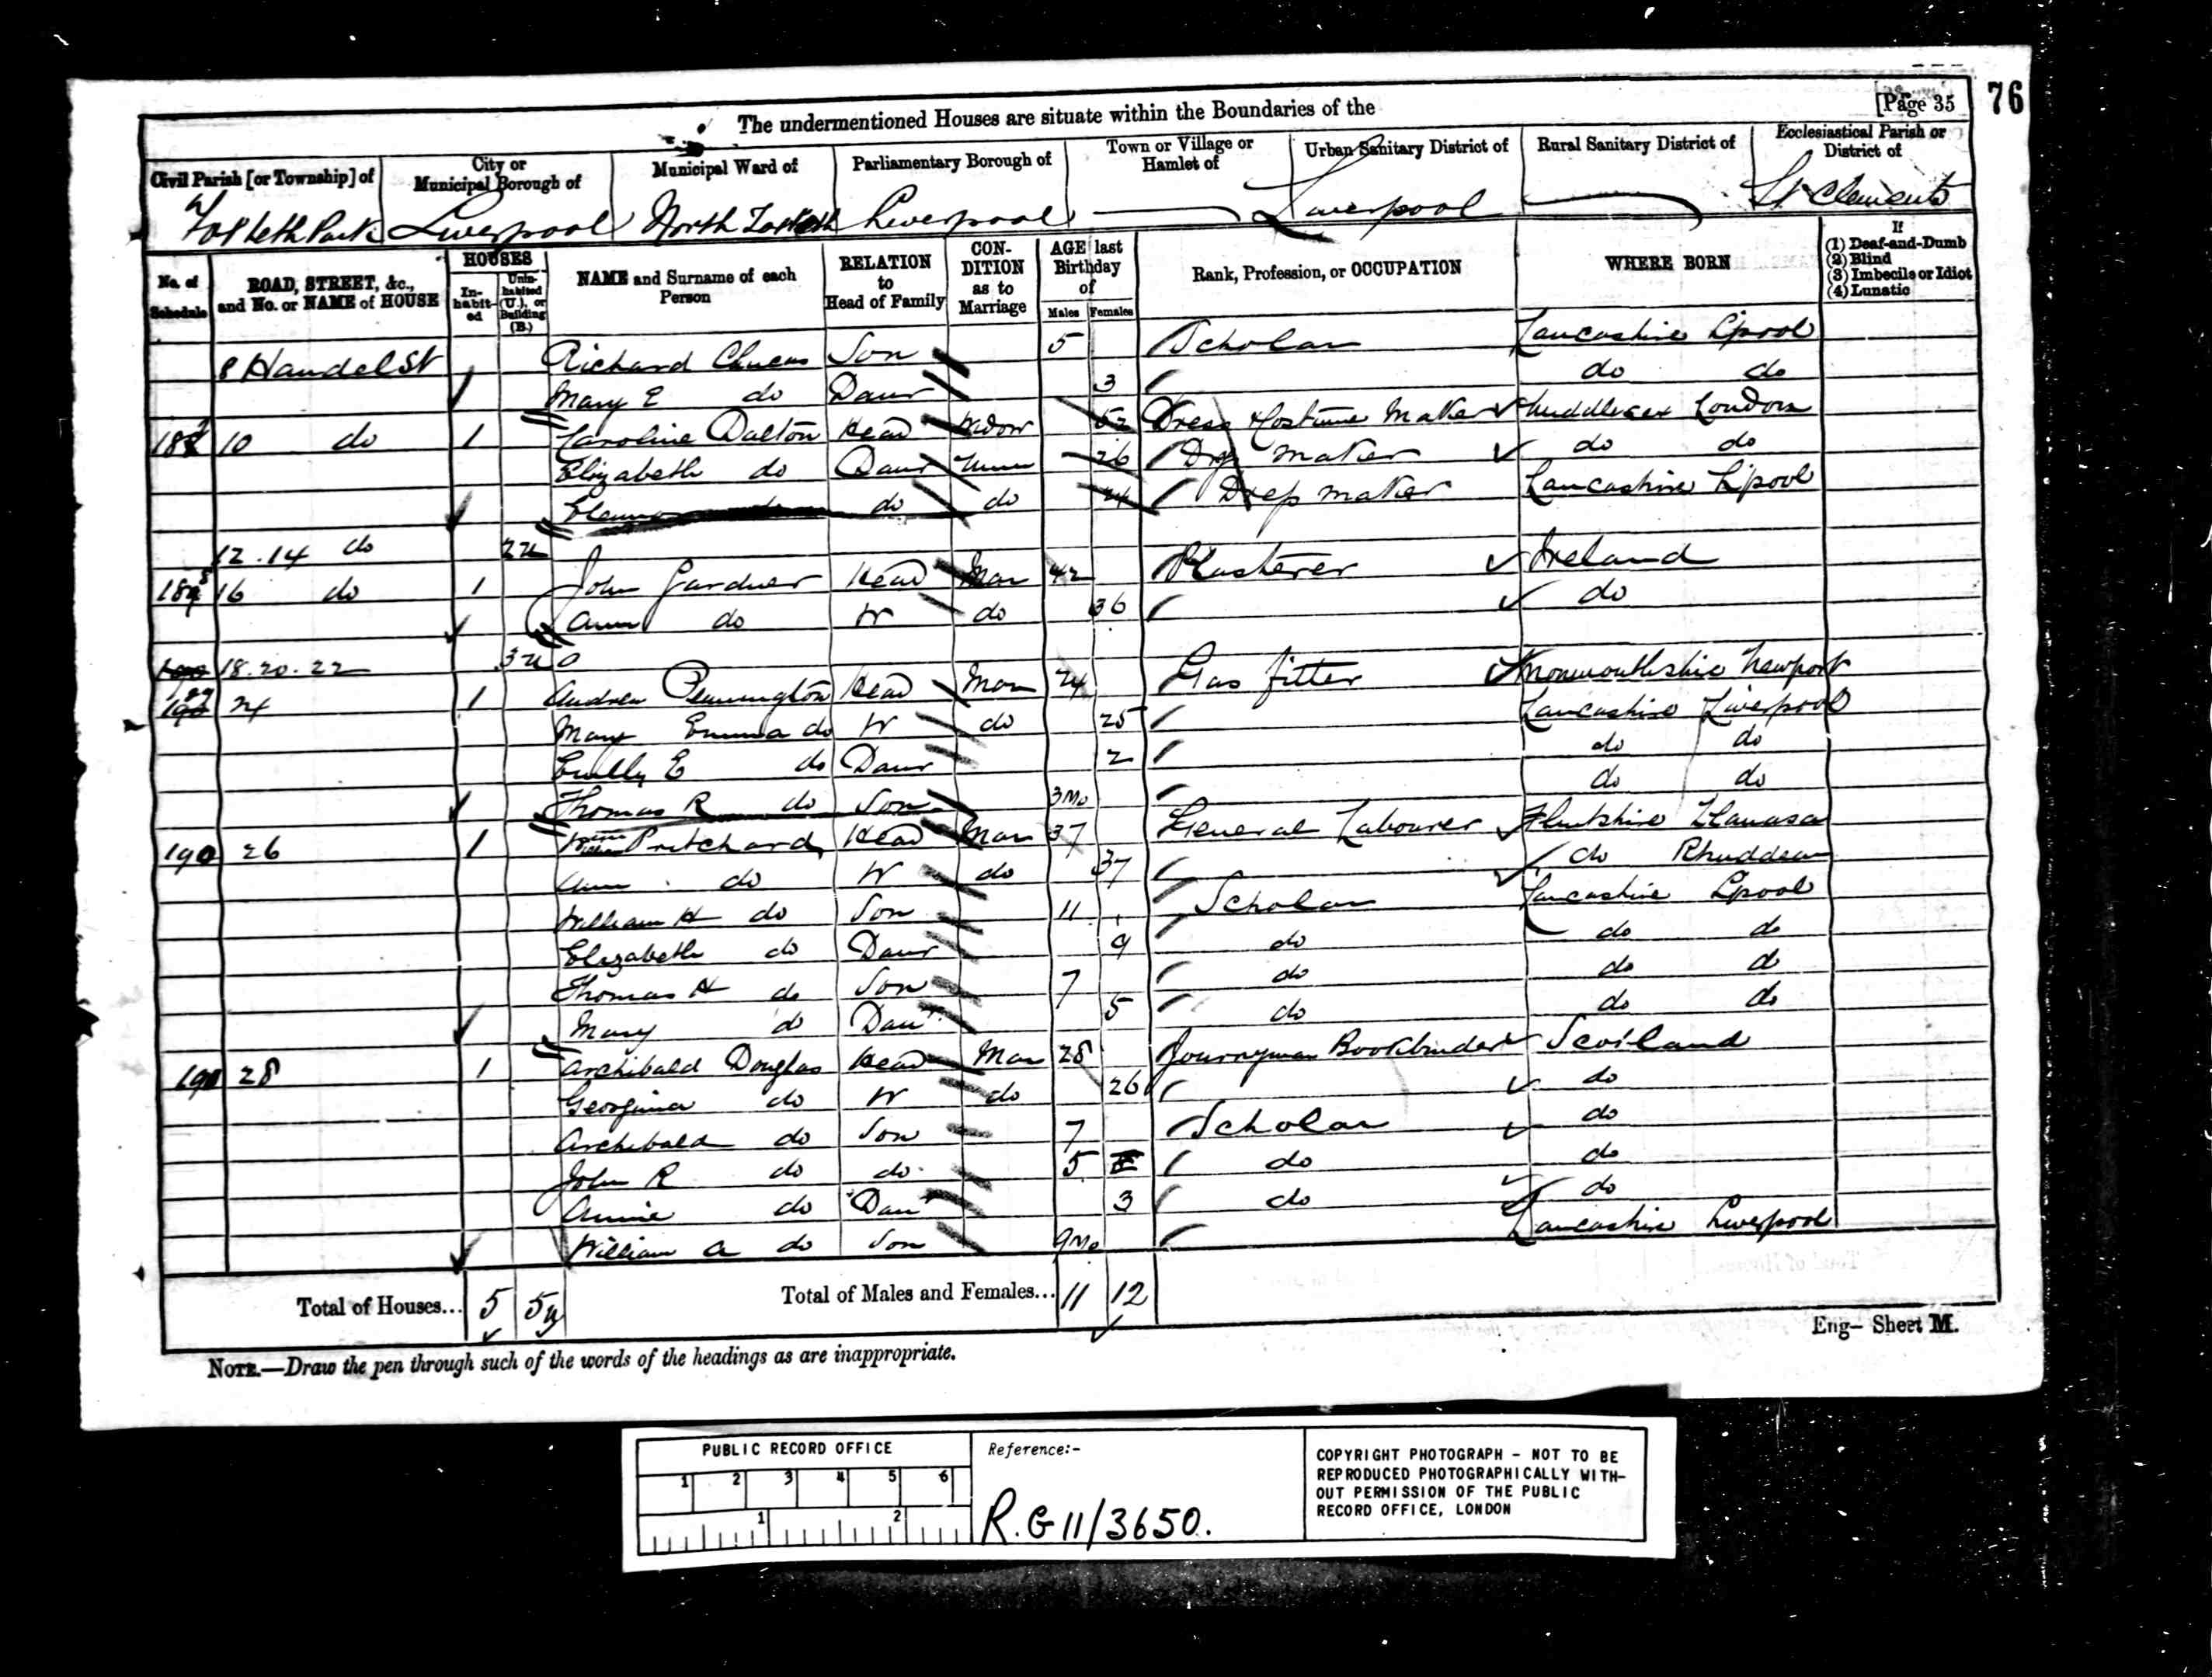 [Page 35
76
The undermentioned Houses are situate within the Boundaries of the
Civil Parish [or Township] of
City or Municipal Borough of
Municipal Ward of
Parliamentary Borough of
Town or Village or Hamlet of
Urban Sanitary District of
Rural Sanitary District of
Ecclesiastical Parish or District of
Park Liverpool North Liverpool Liverpool St Clements
No. of Schedule
ROAD, STREET, &c., and No. or NAME of HOUSE
HOUSES
In-habit-ed
Unin-habited (U.), or Building (B.)
NAME and Surname of each Person
RELATION to Head of Family
CON-DITION as to Marriage
AGE last Birthday of
Males
Females
Rank, Profession, or OCCUPATION
WHERE BORN
If
(1) Deaf-and-Dumb
(2) Blind
(3) Imbecile or Idiot
(4) Lunatic
8 Handel St Richard Son 5 Scholar Lancashire L'pool
Mary E do Daur 3 do do
10 do 1 Caroline Dalton Head Widow 52 Dress & Costume Maker Middlesex London
Elizabeth do Daur 26 maker do do
do do 24 Dress maker Lancashire L'pool
12.14 do 2u
16 do 1 John Gardner Head Mar 42 Plasterer Ireland
Ann do W do 36 do
18.20.22 3u
24 1 Andrew Pennington Head Mar 24 Gas fitter Monmouthshire Newport
Mary Emma do W do 25 Lancashire Liverpool
Emily E do Daur 2 do do
Thomas R do Son 3Mo do do
190 26 1 Pritchard Head Mar 37 General Labourer Flintshire Llanasa
Ann do W do 37 do Rhuddlan
William H do Son 11 Scholar Lancashire L'pool
Elizabeth do Daur 9 do do do
Thomas H do Son 7 do do do
Mary do Daur 5 do do do
191 28 1 Archibald Douglas Head Mar 28 Journeyman Bookbinder Scotland
Georgina do W do 26 do
Archibald do Son 7 Scholar do
John R do do 5 do do
Annie do Daur 3 do do
William A do Son 9Mo Lancashire Liverpool
Total of Houses... 5 5u Total of Males and Females... 11 12
Eng– Sheet M.
NOTE.—Draw the pen through such of the words of the headings as are inappropriate.
PUBLIC RECORD OFFICE
1 2 3 4 5 6
1 2
Reference:-
R.G 11/3650.
COPYRIGHT PHOTOGRAPH – NOT TO BE
REPRODUCED PHOTOGRAPHICALLY WITH-
OUT PERMISSION OF THE PUBLIC
RECORD OFFICE, LONDON